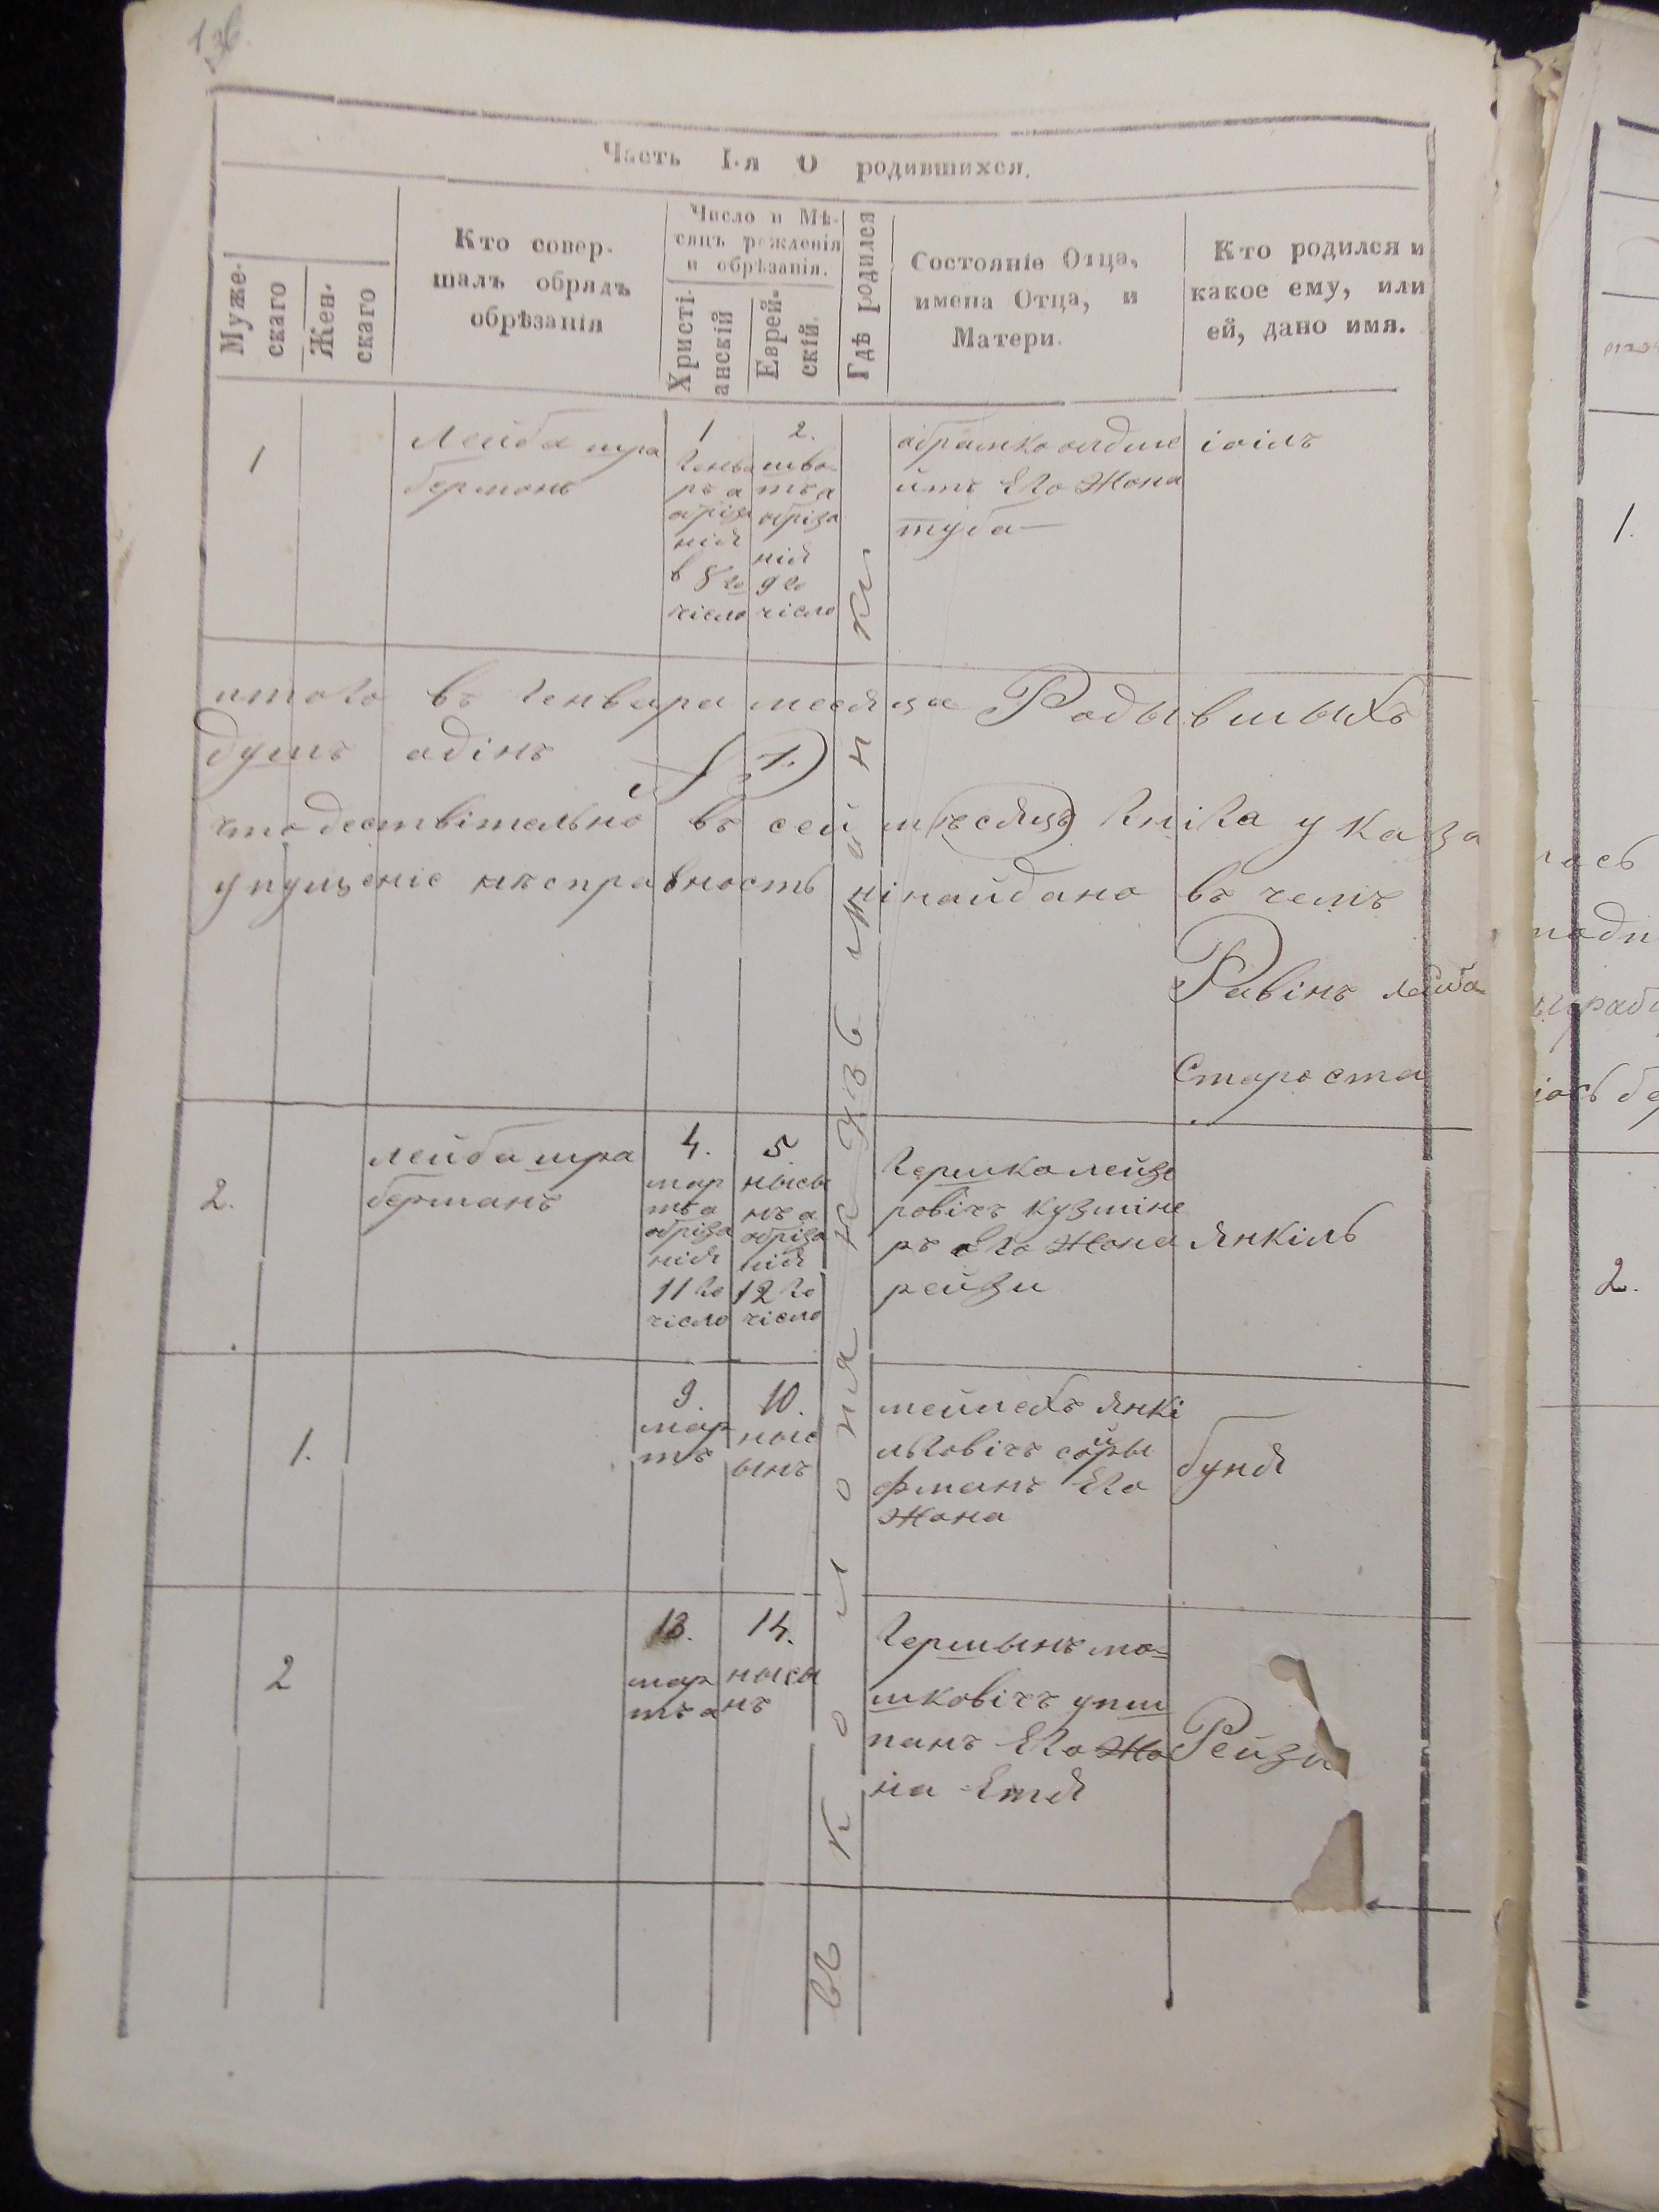 136.
Часть I-я О родившихся.
Муже-
скаго
Жен-
скаго
Кто совер-
шалъ обрядъ
обрѣзанія
Число и Мѣ-
сяцъ рожденія
и обрѣзанія.
Христі-
анскій
Еврей-
скій.
Гдѣ родился
Состояніе Отца,
имена Отца, и
Матери.
Кто родился и
какое ему, или
ей, дано имя.
1
Лейба шра
берманъ
1
генва
ръ а
обріза
нія
в 8 го
чісло
2.
шво
тъ а
обріза
ній
9 го
чісло
абрамко
йтъ Его Жона
туба
іоілъ
итого въ генвара месяца Родывшыхъ
душъ адінъ 1.
что дествітельно въ сей месяцъ кніга указа
упущеніе несправность нінайдано въ чемъ
Равінъ лейба
Староста
въ колонія кузьмінка
2.
лейба шра
берманъ
4.
мар
тъ а
обріза
нія
11 го
чісло
5.
нысы
нъ а
обріза
ній
12 го
чісло
гершко лейзе
ровічъ кузміне
ръ его жона
рейзи
янкіль
1.
9.
мар
тъ
10.
ныс
ынъ
мейлехъ янкі
льговічъ
фманъ Его
жона
буня
2
13.
мар
тъ а
14.
нысы
нъ
гершынъ мо-
шковічъ
панъ Его Жо
на Етя
Рейзи
1.
2.